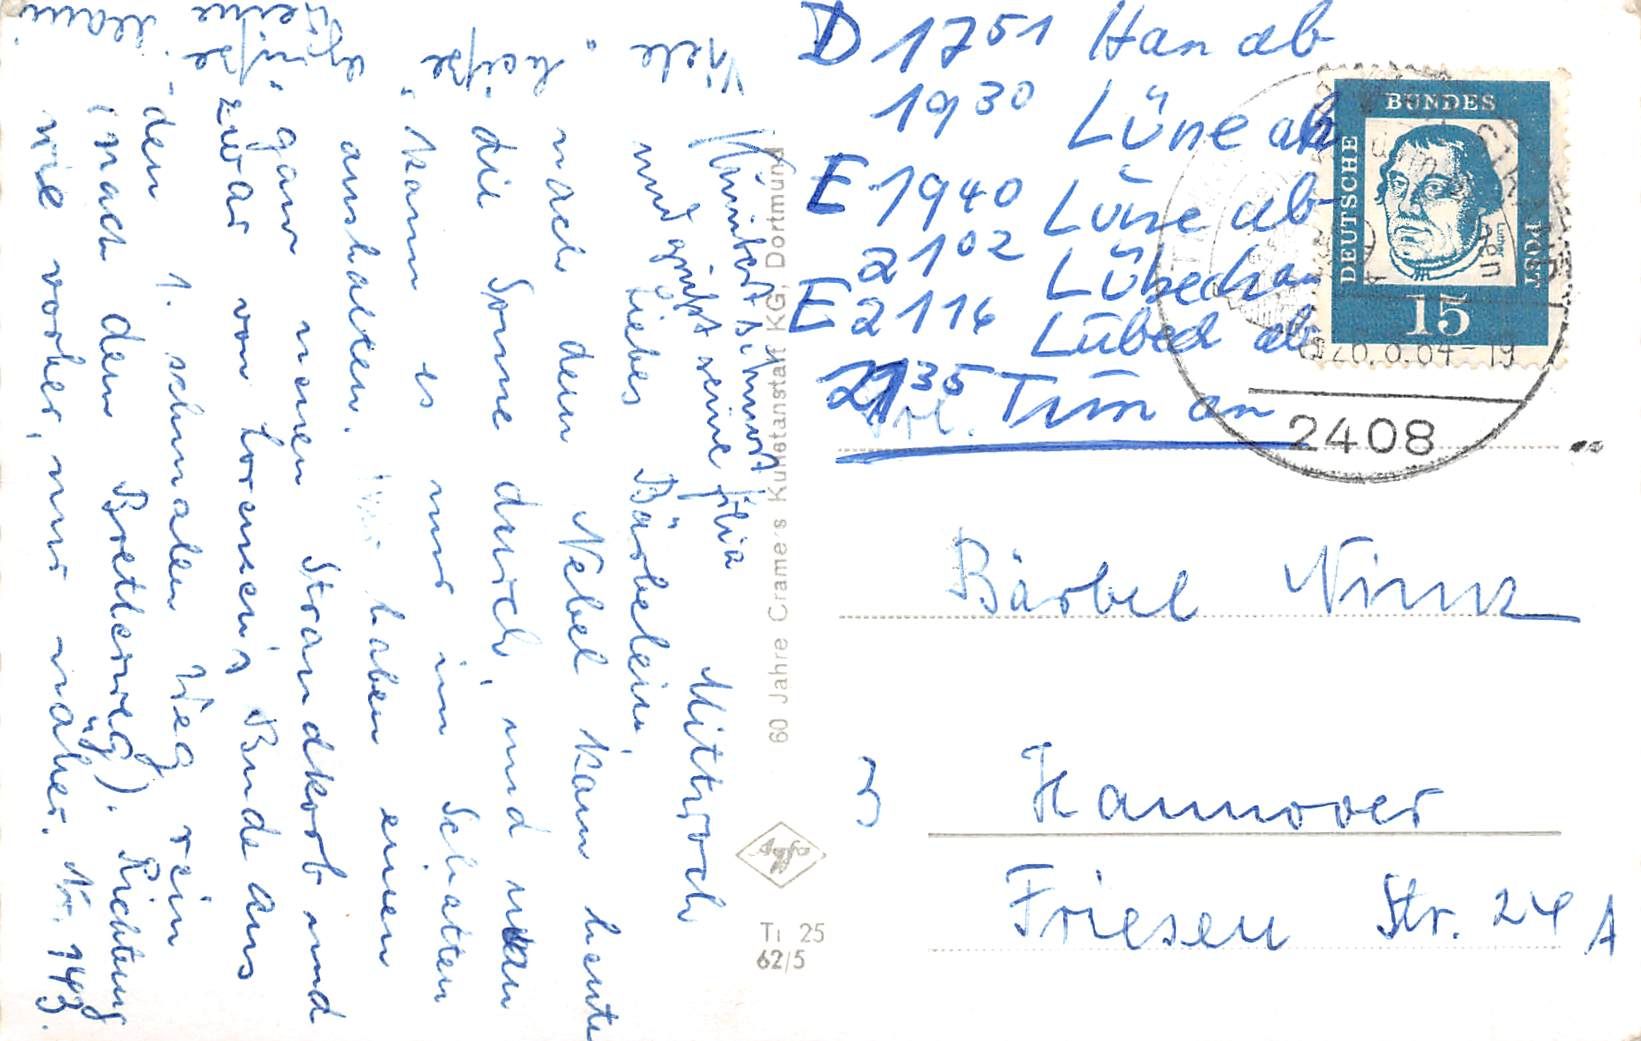 Mittwoch
Liebes Bärbelein,
nach dem Nebel kam heute
die Sonne durch, und man
kann es nur im Schatten
aushalten. Wir haben einen
ganz neuen Strandkorb und
zwar von Lorenzens Bude aus
den 1. schmalen Weg rein
(nach dem Bretterweg). Richtung
wie vorher, nur näher. Nr. 143.
Viele
heiße
Grüße
Deine Mami
und grüßt seine filia
60 Jahre Cramers Kunstanstalt KG, Dortmund
Agfa
Ti 25
62/5
D 17 51 Han ab
19 30 Lüne ab
E 19 40 Lüne ab
21 02 Lübeck an
E 21 16 Lübeck ab
21 35 Tim an
Frl.
Bärbel Nimz
3 Hannover
Friesen Str. 24 A
DEUTSCHE
BUNDES
POST
15
26.8.64-19
2408